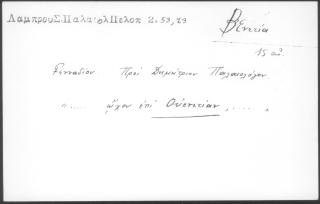 ΛαμπρουΣ.ΠαλαιολΠελοπ 2.53,19
Βενετία
15 αἰ.
Γενναδίου Πρὸς Δημήτριον Παλαιολόγον.
"..... ᾤχου ἐπὶ Οὐενετίαν ,......"